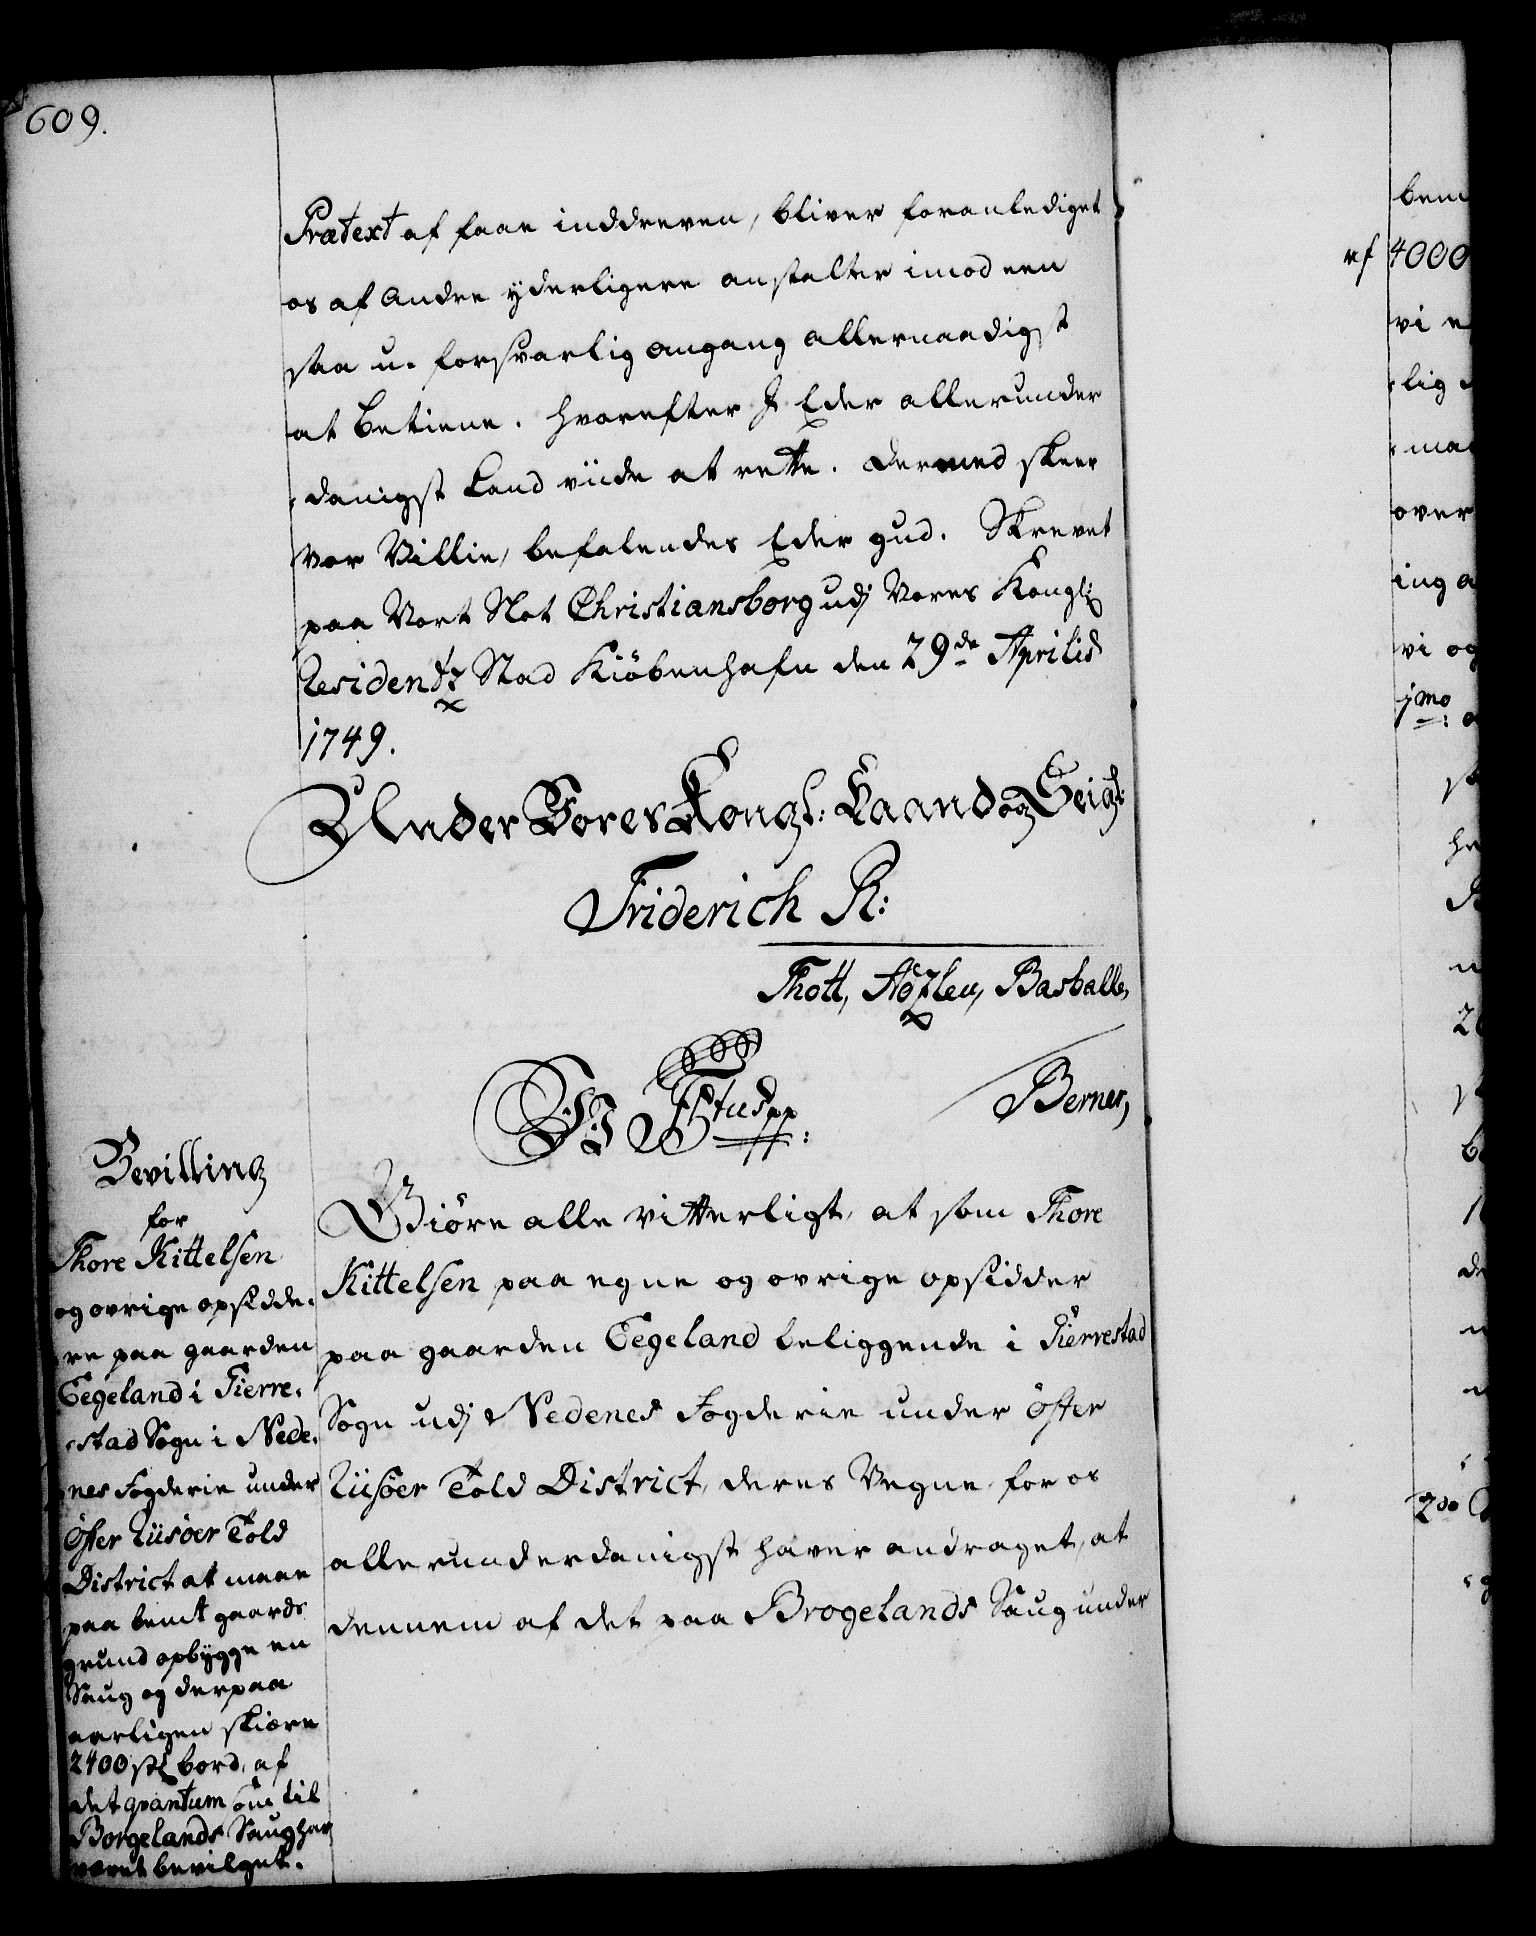 609.
Prætext af faae inddreven, bliver foranlediget
os af andre yderligere anstalter imod een
saa u-forsvarlig omgang allernaadigst
at betiene. Hvorefter I Eder allerunder
danigst haved viide at rette. Dermed skeer
Vor Villie, befalendes Eder Gud. Skrevet
paa Vort Slot Christiansborg udj Vores Kongl:
Residentz Stad Kiöbenhafn den 29de Aprilis
1749.
Under Vores Kongl: Haand og Seigl:
Friderich R:
Thott, Holzten, Basballe,
Berner,
Bevilling
for
Thore Kittelsen
og øvrige opsidde-
re paa gaarden
Egeland i Tierre-
stad Sogn i Nede-
nes Fogderie under
Öster Riisöer Told
District at maae
paa bemt gaards
grund opbygge en
Saug og derpaa
aarligen skiære
2400 st bord, af
det qvantum som til
Borgelands Saug har
været bevilget.
F: 5tus pp:
Giöre alle vitterligt, at som Thore
Kittelsen paa egne og øvrige opsidder
paa gaarden Egeland beliggende i Tierrestad
Sogn udj Nedenes Fogderie under Öster
Riisöer Told District, deres Vegne, for os
allerunderdanigst haver andraget, at
dennem af det paa Brogelands Saug under
bem
rf 4000
vi e
lig
mac
over
ing a
vi og
1mo
he
de
2do